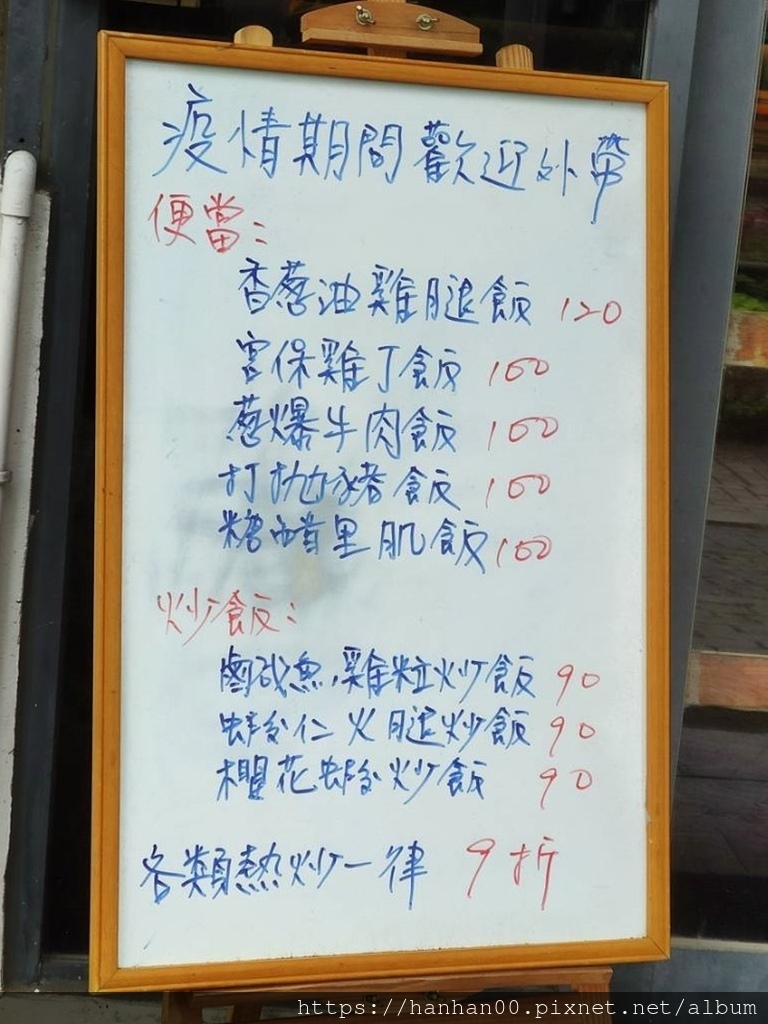 疫情期間歡迎外帶
便當：
香蔥油雞腿飯 120
宮保雞丁飯 100
蔥爆牛肉飯 100
打拋豬飯 100
糖醋里肌飯 100
炒飯：
鹹魚雞粒炒飯 90
蝦仁火腿炒飯 90
櫻花蝦炒飯 90
各類熱炒一律 9折
https://hanhan00.pixnet.net/album